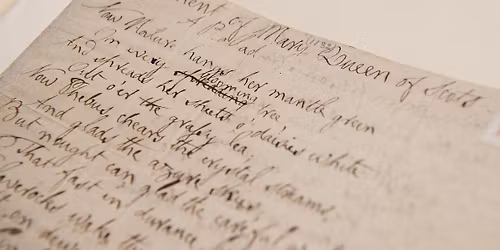 ment of Mary Queen of Scots
A Ballad
Now Nature hangs her mantle green
In every blooming tree
And spreads her sheets o' daisies white
Out o'er the grassy lea;
Now Phebus chears the crystal streams,
And glads the azure skies;
But nought can glad the
That fast in durance
laverocks wake the